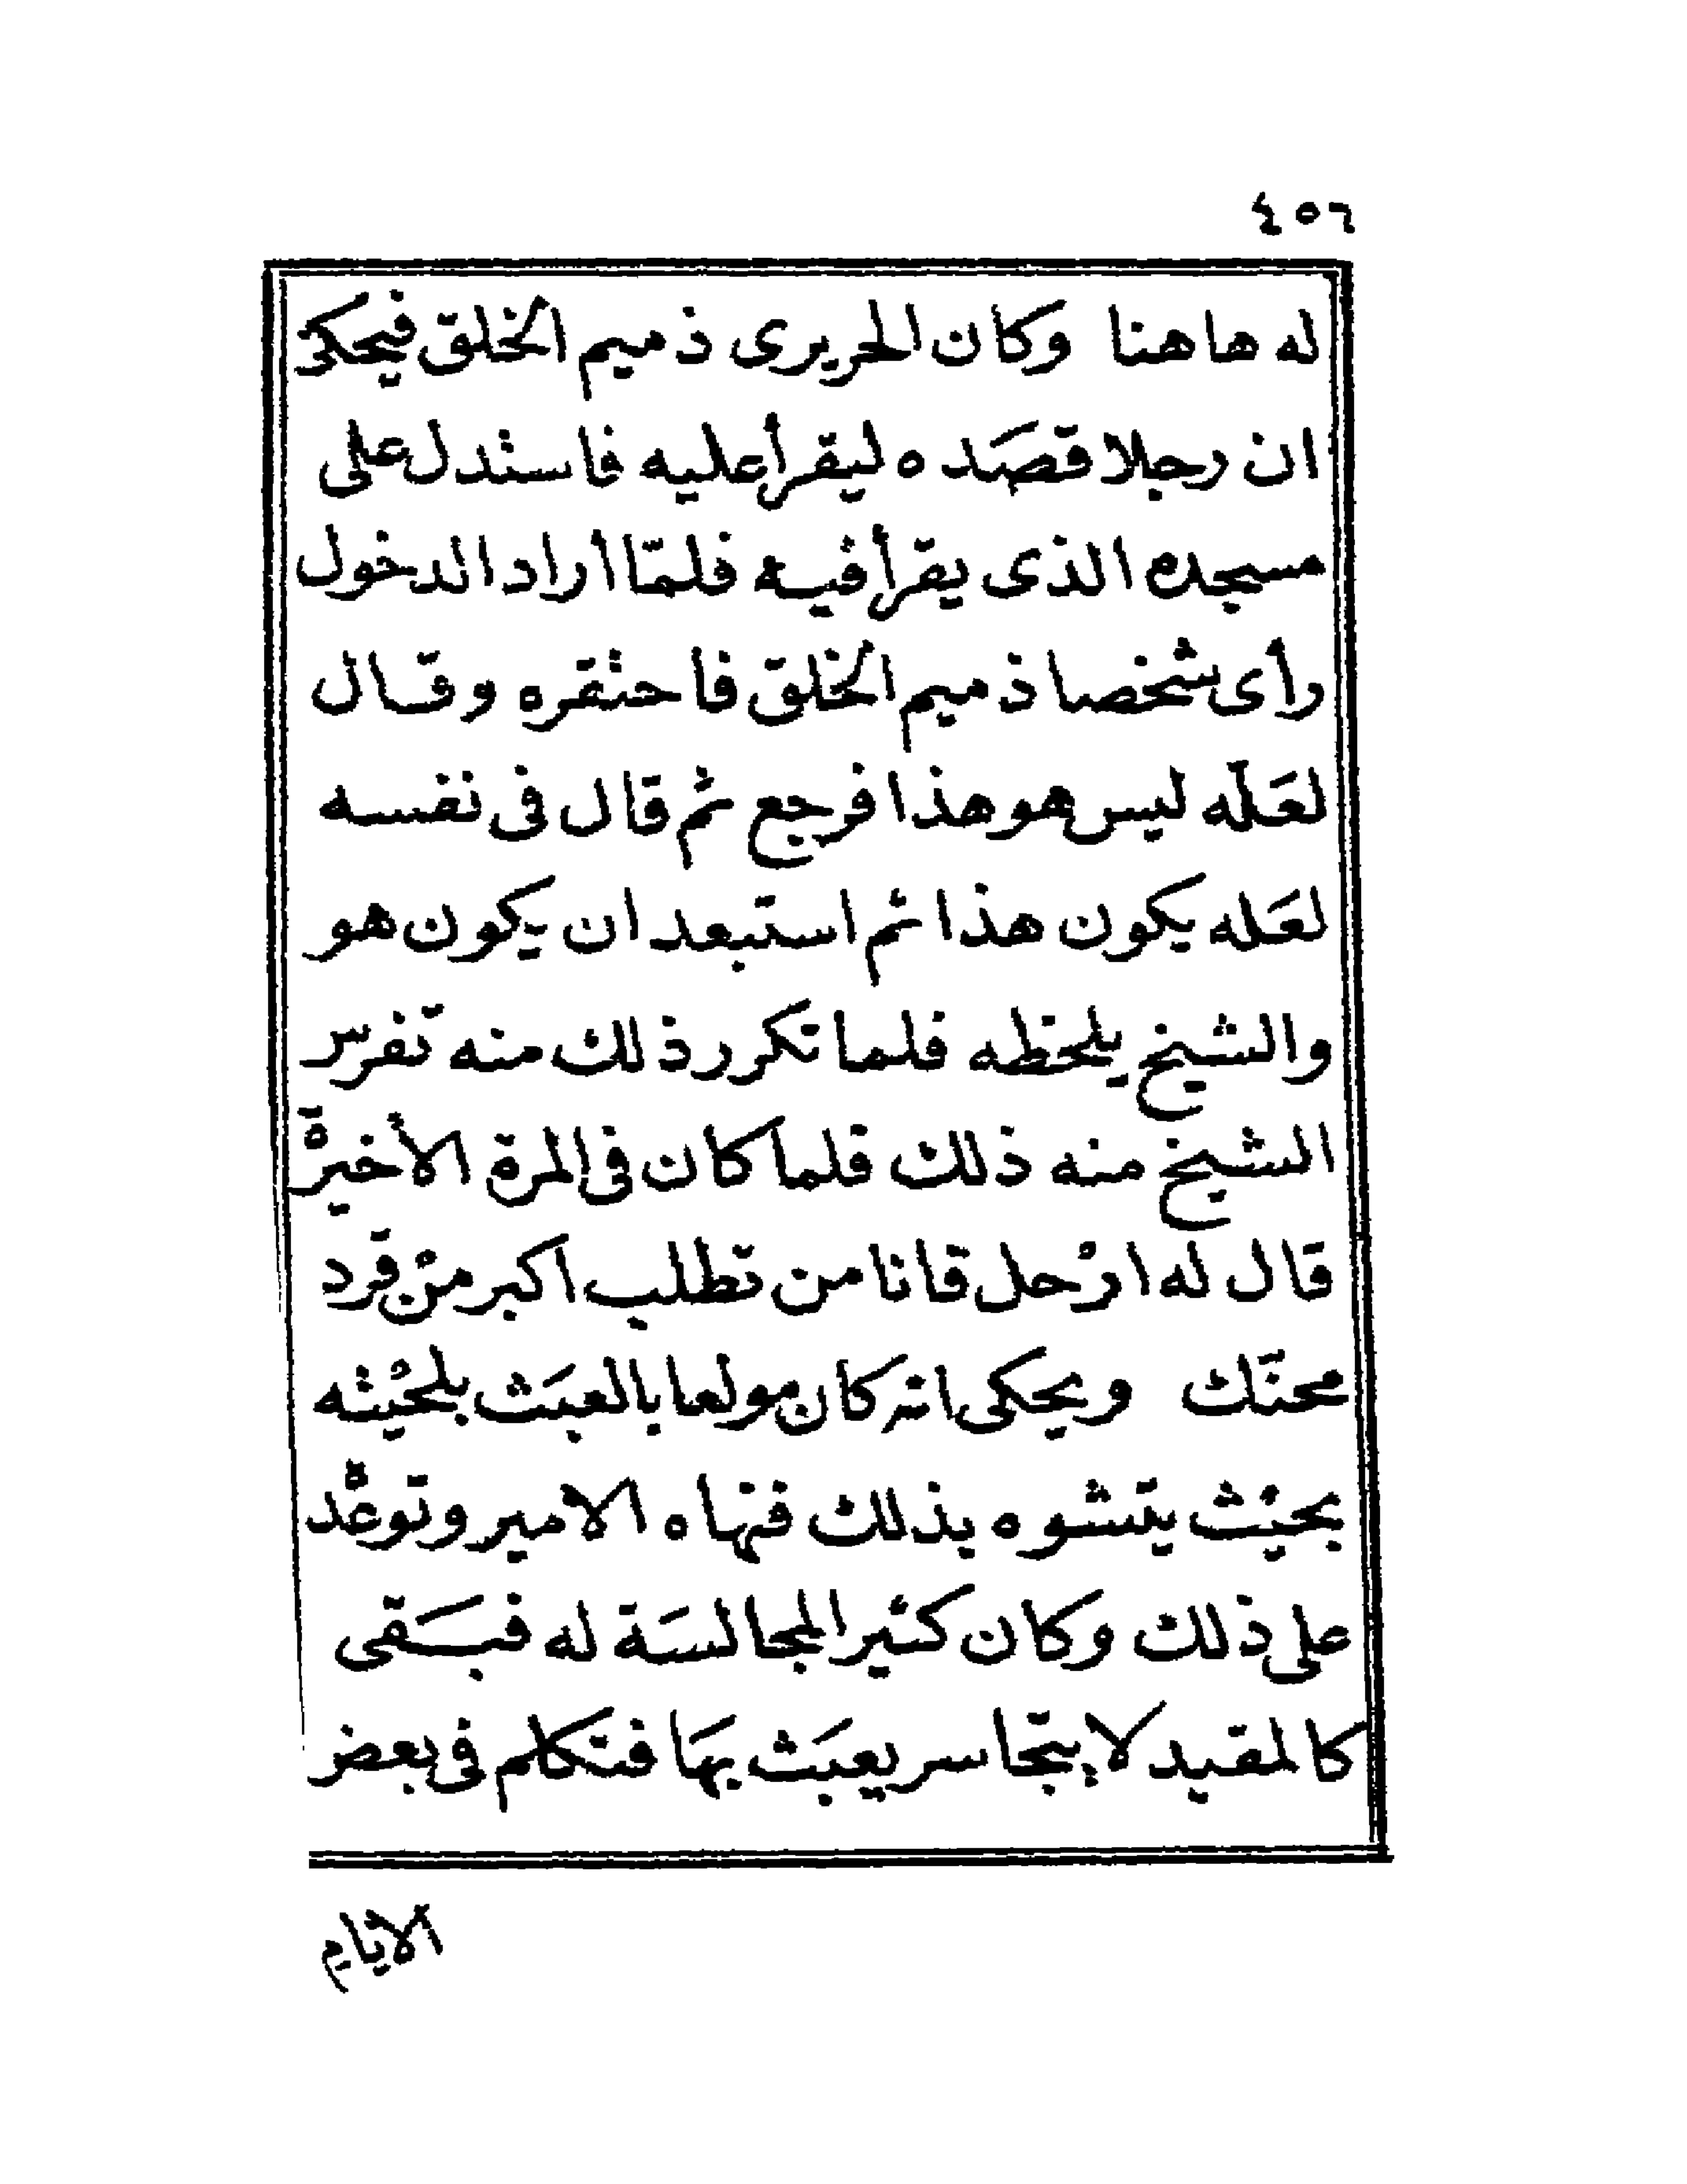 ٤٥٦
له هاهنا وكان الحريرى ذميم الخلق فيحكى
ان رجلا قصَده ليقرأ عليه فاستدل على
مسجده الذى يقرأ فيه فلمّا أراد الدخول
رأى شخصا ذميم الخلق فاحتقره وقال
لعَلّه ليس هو هذا فرجع ثم قال فى نفسه
لعَله يكون هذا ثم استبعد ان يكون هو
والشيخ يلحظه فلما تكرر ذلك منه تفرّس
الشيخ منه ذلك فلما كان فى المرة الأخيرة
قال له ارْحل فانا من تطلب اكبر منْ قرد
محنّك ويحكى انه كان مولعا بالعبَث بلحيْته
بحيْث يتشوه بذلك فنهاه الامير وتوعّده
على ذلك وكان كثير المجالسَة له فبَقى
كالمقيد لا يتجاسر يعبَث بهَا فتكلم فى بعض
الايام